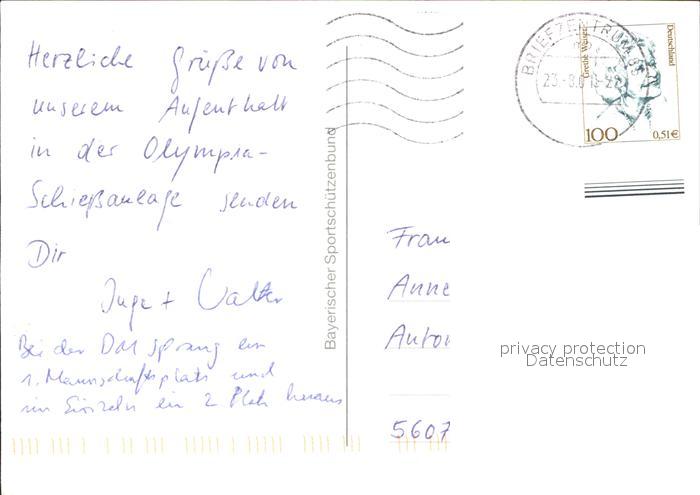 Herzliche Grüße von
unserem Aufenthalt
in der Olympia-
Schießanlage senden
Dir
Inge + Walter
Bei der DM sprang ein
1. Mannschaftsplatz und
im Einzeln ein 2 Platz heraus
Bayerischer Sportschützenbund
BRIEFZENTRUM
Grethe Weiser
Deutschland
100
0,51€
Frau
Anne
Auto
privacy protection
Datenschutz
5607